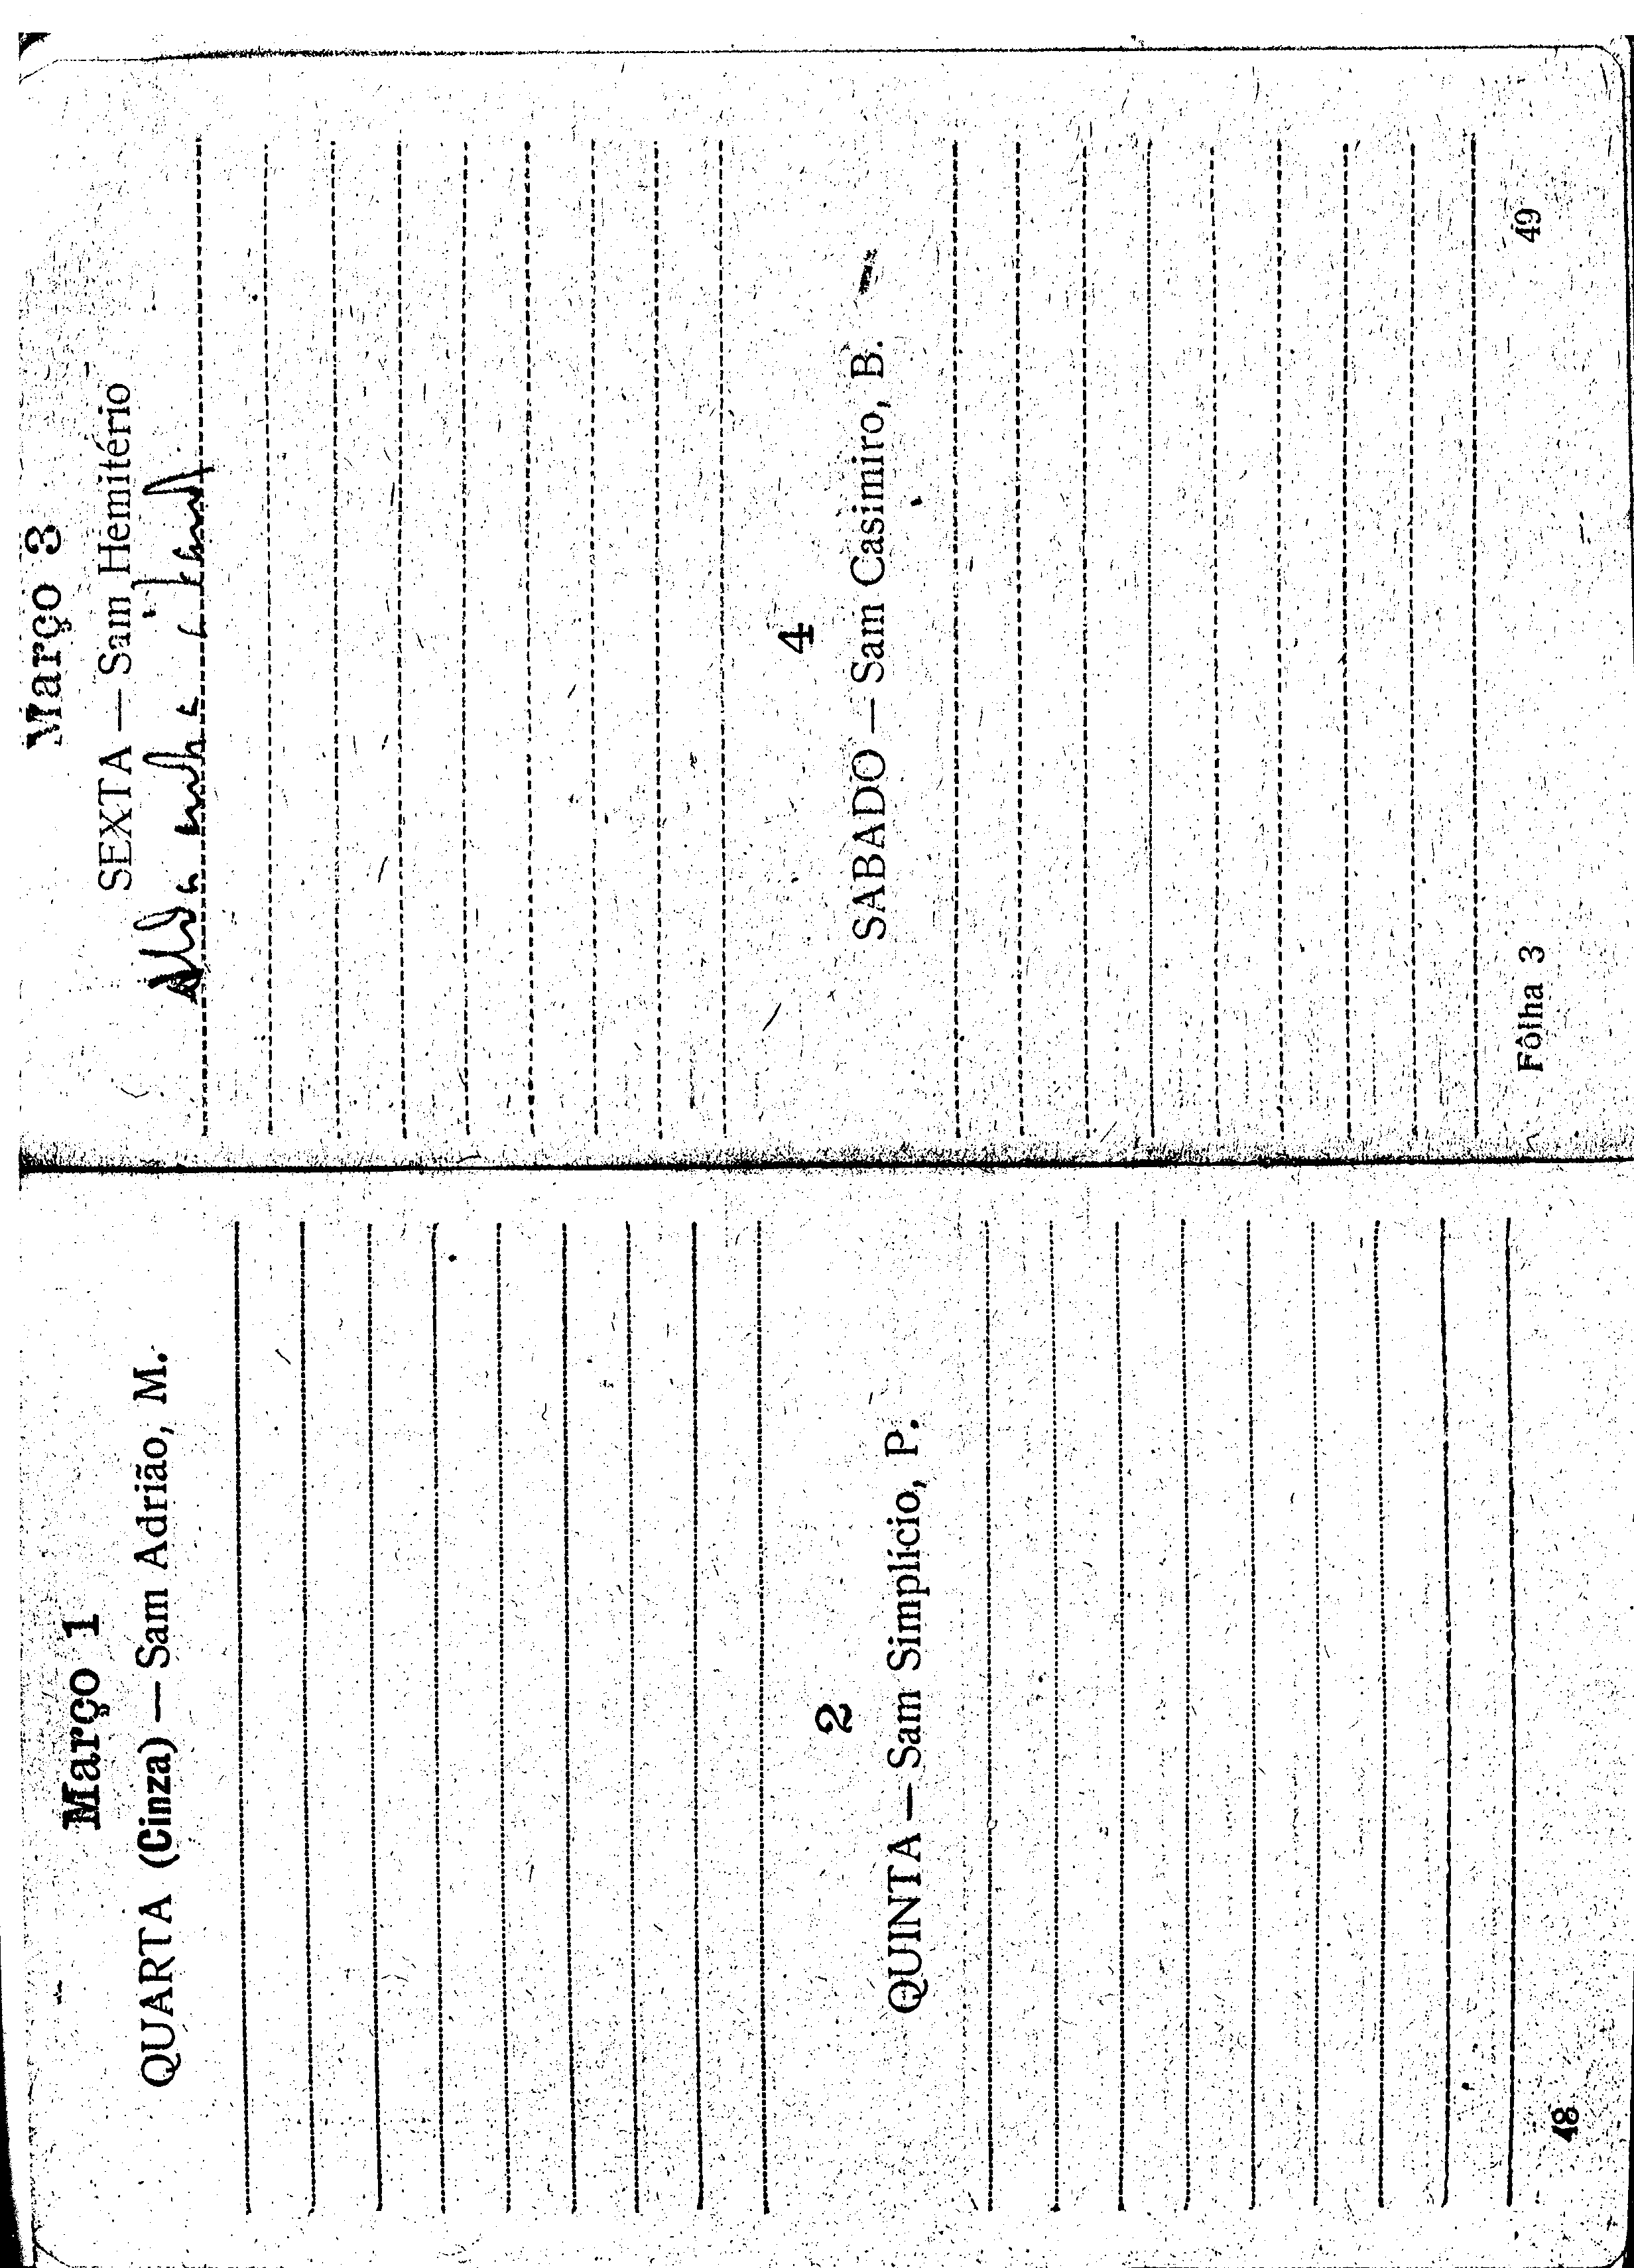 Março 1
QUARTA (Cinza) — Sam Adrião, M.
2
QUINTA — Sam Simplício, P.
48
Março 3
SEXTA — Sam Hemitério
4
SABADO — Sam Casimiro, B.
Fôlha 3
49